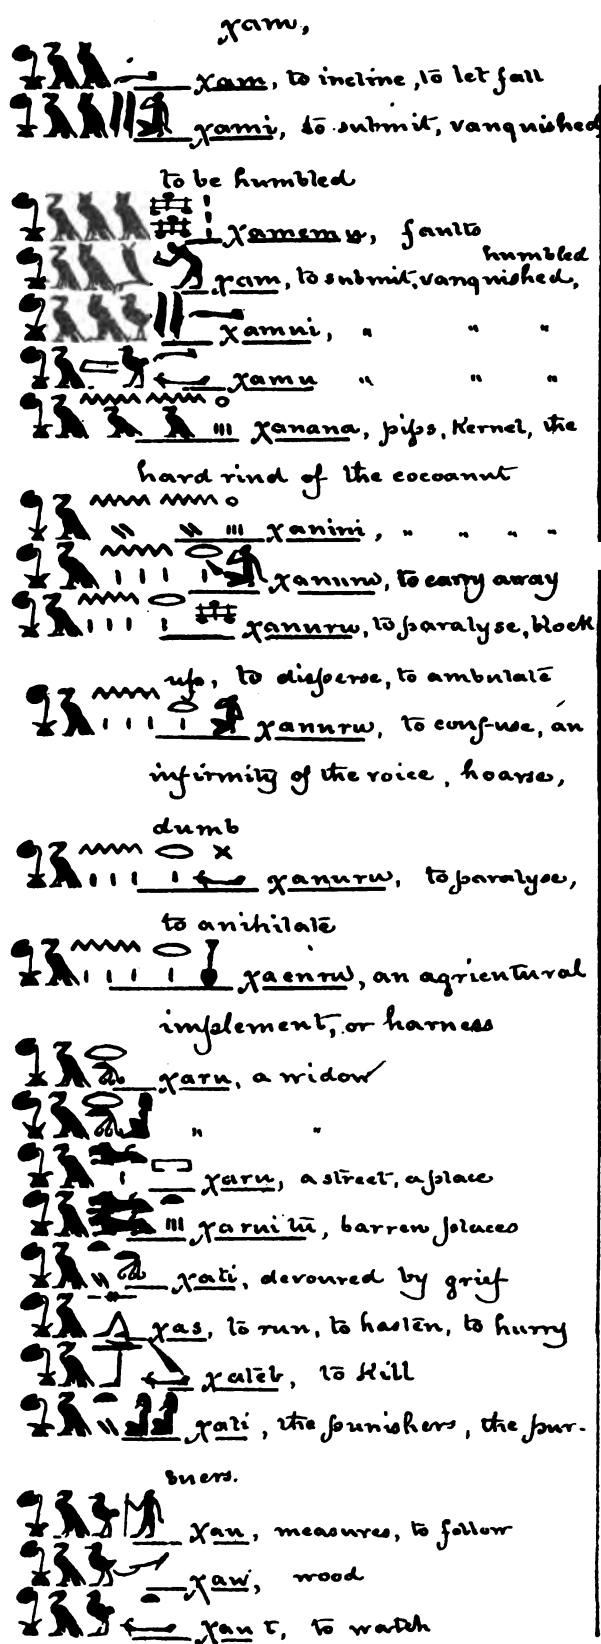 χam,
χam, to incline, to let fall
χami, to submit, vanquished
to be humbled
χamemu, faults
humbled
χam, to submit, vanquished,
χamui, " " "
χamu " " "
χanana, pips, Kernel, the
hard rind of the cocoanut
χanini, " " " "
to carry away
χanuru, to paralyse, block
up, to disperse, to ambulate
χanuru, to confuse, an
infirmity of the voice, hoarse,
dumb
χanuru, to paralyse,
to anihilate
χaenru, an agricultural
implement, or harness
χaru, a widow
" "
χaru, a street, a place
χaruitu, barren places
χati, devoured by grief
χas, to run, to hasten, to hurry
χateb, to Kill
χati, the punishers, the pur-
suers.
χau, measures, to follow
χaw, wood
χaut, to watch